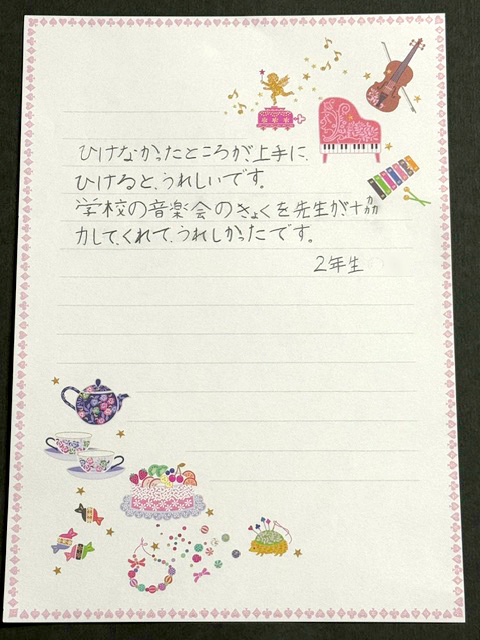 ひけなかったところが、上手に、
ひけると、うれしいです。
学校の音楽会のきょくを先生が協
力して、くれて、うれしかったです。
2年生